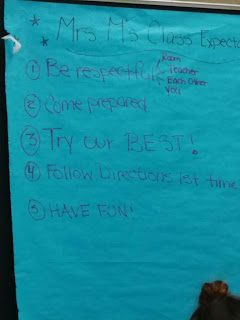 * * Mrs M's Class Expecta
① Be respectful
Room
Teacher
Each Other
You
② Come prepared
③ Try ur BEST!
④ Follow Directions 1st time
⑤ HAVE FUN!